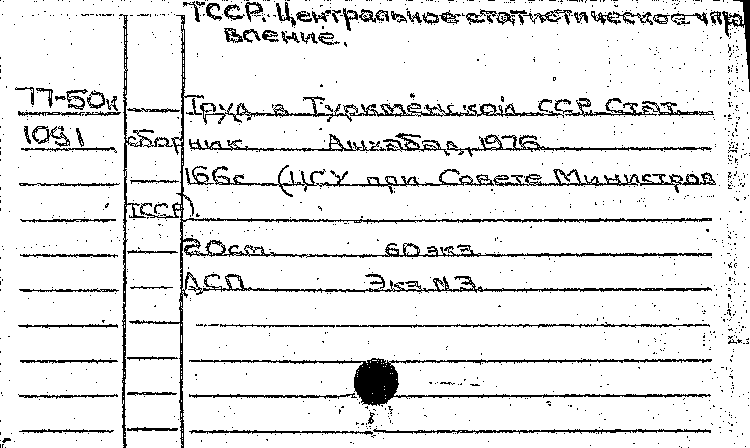 ТССР. Центральное статистическое упра
вление.
77-50к Труд в Туркменской ССР. Стат.
1091 сборник. Ашхабад, 1976
166с (ЦСУ при Совете Министров
ТССР).
20см. 60экз
ДСП Экз N3.